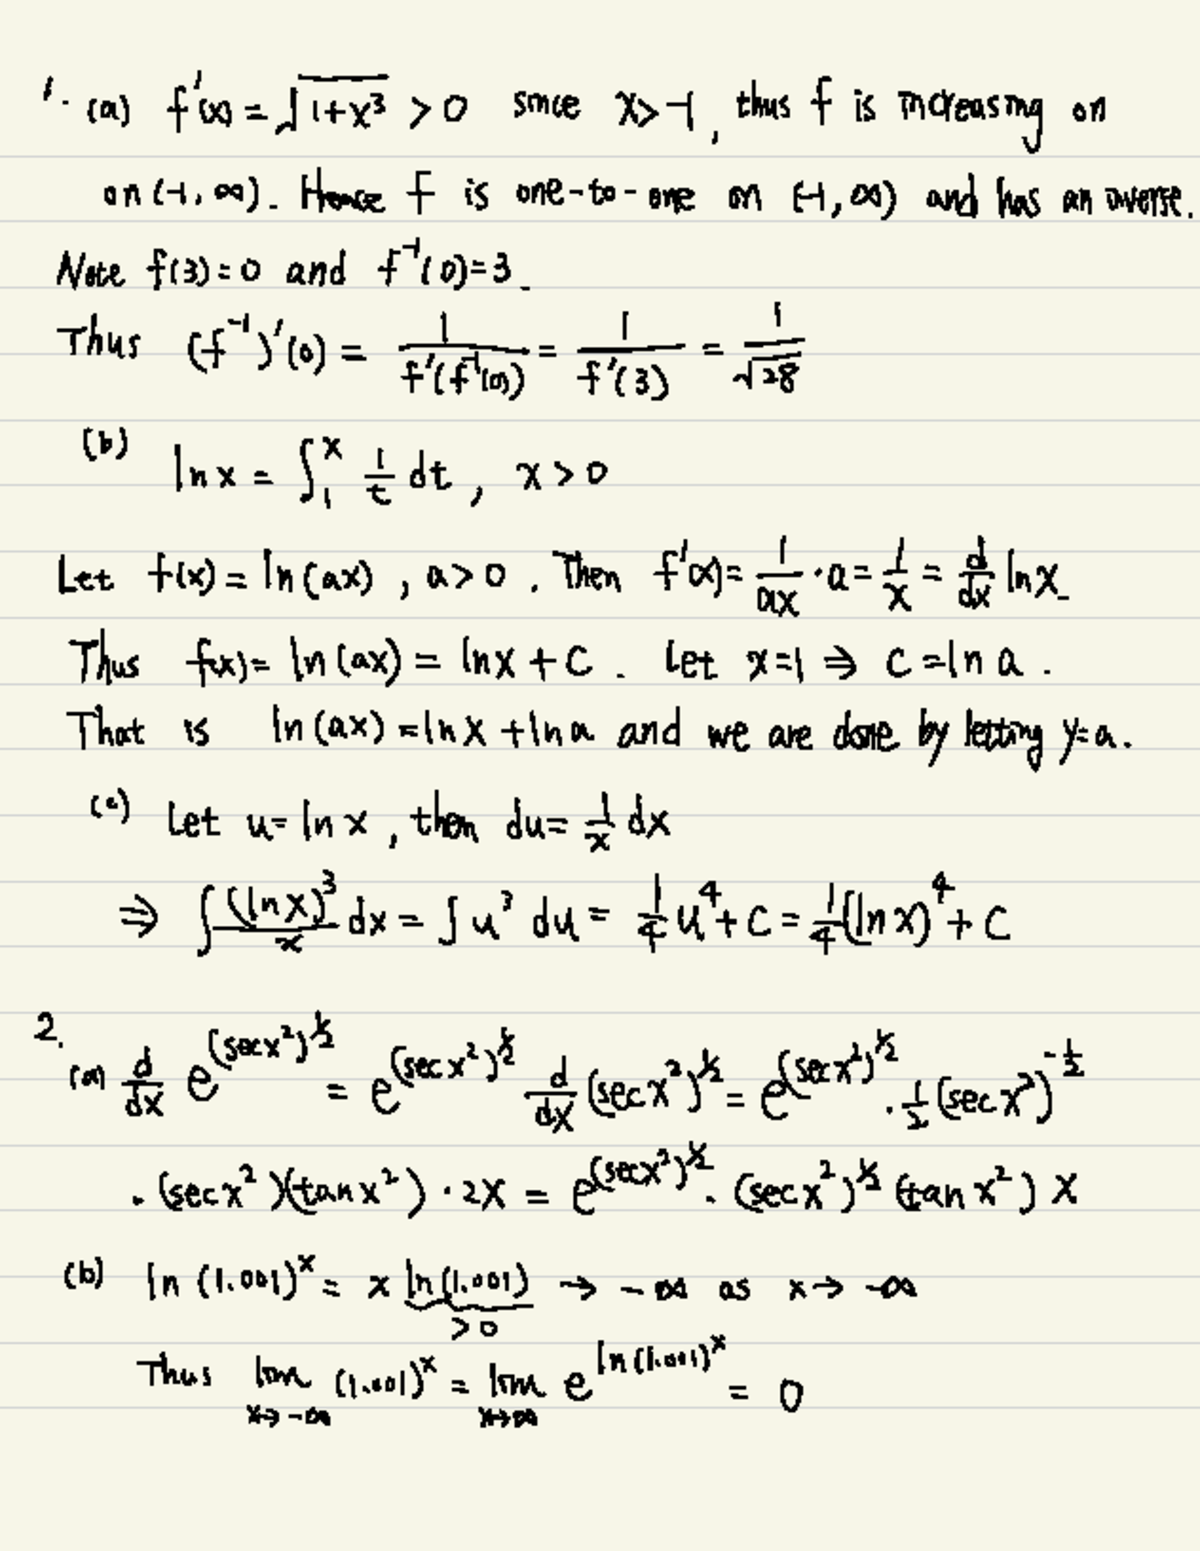 1. (a) f'(x) = √(1+x³) > 0 since x>-1, thus f is increasing on
on (-1, ∞). Hence f is one-to-one on (-1, ∞) and has an inverse.
Note f(3)=0 and f⁻¹(0)=3.
Thus (f⁻¹)'(0) = 1/(f'(f⁻¹(0))) = 1/(f'(3)) = 1/√28
(b) ln x = ∫₁ˣ 1/t dt, x>0
Let f(x) = ln(ax), a>0. Then f'(x) = 1/(ax) · a = 1/x = d/dx ln x.
Thus f(x) = ln(ax) = ln x + C. Let x=1 ⇒ C = ln a.
That is ln(ax) = ln x + ln a and we are done by letting y=a.
(c) Let u = ln x, then du = 1/x dx
⇒ ∫ (ln x)³/x dx = ∫ u³ du = 1/4 u⁴ + C = 1/4 (ln x)⁴ + C
2.
(a) d/dx e^((sec x²)^(1/2)) = e^((sec x²)^(1/2)) d/dx (sec x²)^(1/2) = e^((sec x²)^(1/2)) · 1/2 (sec x²)^(-1/2)
· (sec x²)(tan x²) · 2x = e^((sec x²)^(1/2)) · (sec x²)^(1/2) (tan x²) x
(b) ln (1.001)ˣ = x ln(1.001) → -∞ as x → -∞
>0
Thus lim x→-∞ (1.001)ˣ = lim x→∞ e^(ln(1.001)ˣ) = 0